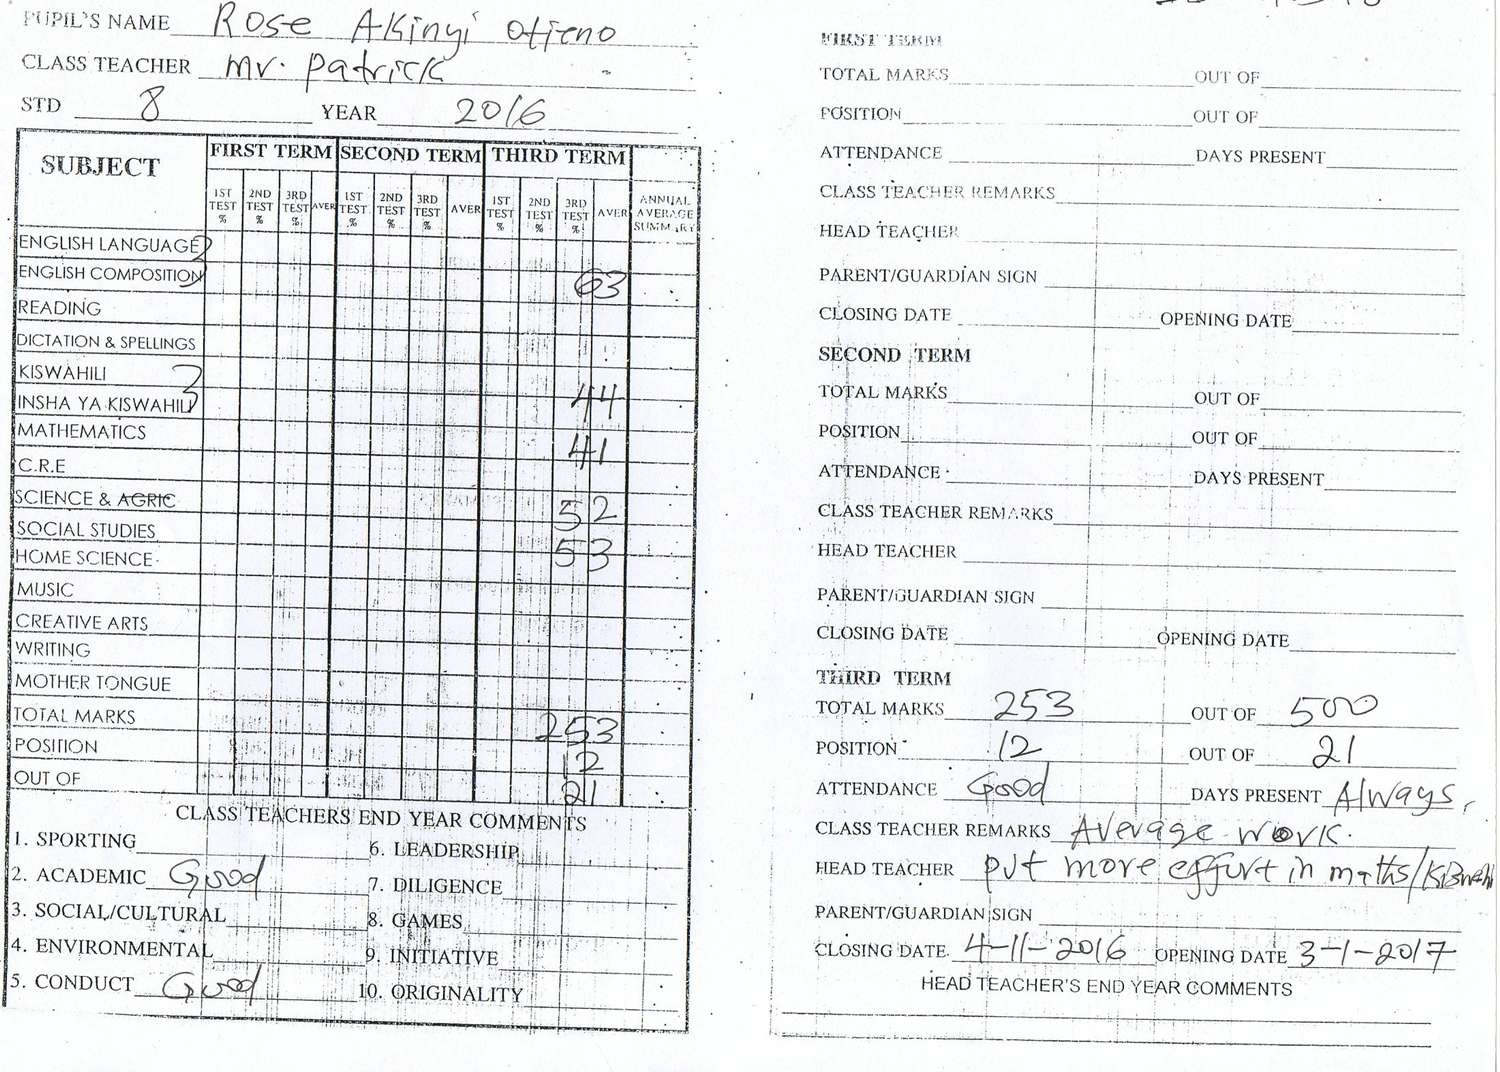 PUPIL'S NAME Rose Akinyi Otieno
CLASS TEACHER Mr. Patrick
STD 8 YEAR 2016
SUBJECT FIRST TERM SECOND TERM THIRD TERM
1ST TEST % 2ND TEST % 3RD TEST % AVER 1ST TEST % 2ND TEST % 3RD TEST % AVER 1ST TEST % 2ND TEST % 3RD TEST % AVER ANNUAL AVERAGE SUMMARY
ENGLISH LANGUAGE
ENGLISH COMPOSITION 63
READING
DICTATION & SPELLINGS
KISWAHILI
INSHA YA KISWAHILI 44
MATHEMATICS 41
C.R.E
SCIENCE & AGRIC 52
SOCIAL STUDIES 53
HOME SCIENCE
MUSIC
CREATIVE ARTS
WRITING
MOTHER TONGUE
TOTAL MARKS 253
POSITION 12
OUT OF 21
CLASS TEACHERS END YEAR COMMENTS
1. SPORTING 6. LEADERSHIP
2. ACADEMIC Good 7. DILIGENCE
3. SOCIAL/CULTURAL 8. GAMES
4. ENVIRONMENTAL 9. INITIATIVE
5. CONDUCT Good 10. ORIGINALITY
FIRST TERM
TOTAL MARKS OUT OF
POSITION OUT OF
ATTENDANCE DAYS PRESENT
CLASS TEACHER REMARKS
HEAD TEACHER
PARENT/GUARDIAN SIGN
CLOSING DATE OPENING DATE
SECOND TERM
TOTAL MARKS OUT OF
POSITION OUT OF
ATTENDANCE DAYS PRESENT
CLASS TEACHER REMARKS
HEAD TEACHER
PARENT/GUARDIAN SIGN
CLOSING DATE OPENING DATE
THIRD TERM
TOTAL MARKS 253 OUT OF 500
POSITION 12 OUT OF 21
ATTENDANCE Good DAYS PRESENT Always,
CLASS TEACHER REMARKS Average work.
HEAD TEACHER put more effort in maths/
PARENT/GUARDIAN SIGN
CLOSING DATE 4-11-2016 OPENING DATE 3-1-2017
HEAD TEACHER'S END YEAR COMMENTS